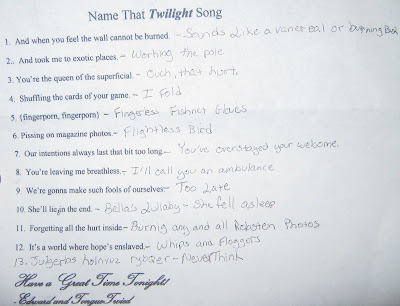 Name That Twilight Song
1. And when you feel the wall cannot be burned. - Sounds Like a vaneral or burning Bed
2.. And took me to exotic places. - Working the pole
3. You're the queen of the superficial. - Ouch, that hurt.
4. Shuffling the cards of your game. - I fold
5. (fingerporn, fingerporn) - Fingerless Fishnet Gloves
6. Pissing on magazine photos. - Flightless Bird
7. Our intentions always last that bit too long. - You've overstayed your welcome.
8. You're leaving me breathless. - I'll call you an ambulance
9. We're gonna make such fools of ourselves. - Too Late
10. She'll lie in the end. - Bella's Lullaby - She fell asleep
11. Forgetting all the hurt inside. - Burnig any and all Robsten Photos
12. It's a world where hope's enslaved. - Whips and Floggers
13. - NeverThink
Have a Great Time Tonight!
Edward and Tongue Twied